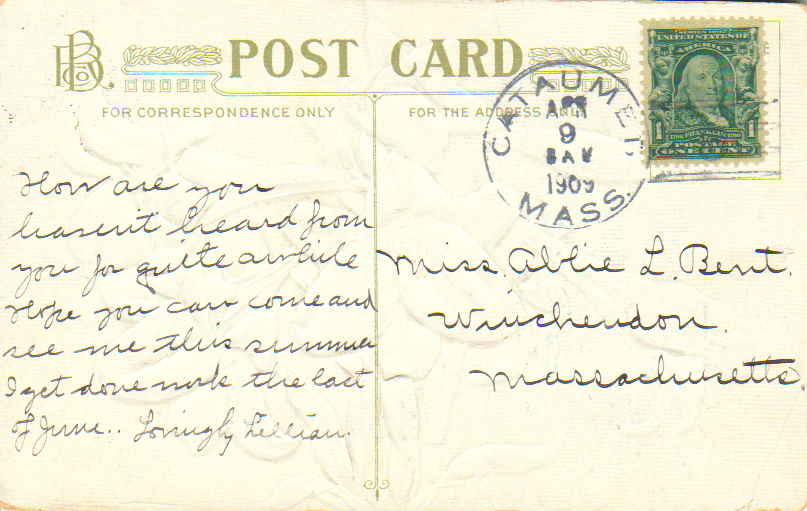 POST CARD
FOR CORRESPONDENCE ONLY
FOR THE ADDRESS ONLY
CATAUMET
APR
9
8 AM
1909
MASS.
SERIES 1902
UNITED STATES OF
AMERICA
1
1706 FRANKLIN 1790
1
POSTAGE
ONE CENT
How are you
hasen't heard from
you for quite awhile
Hope you can come and
see me this summer
I get done work the last
of June.. Lovingly Lillian.
Miss. Abbie L. Bent.
Winchendon.
Massachusetts.